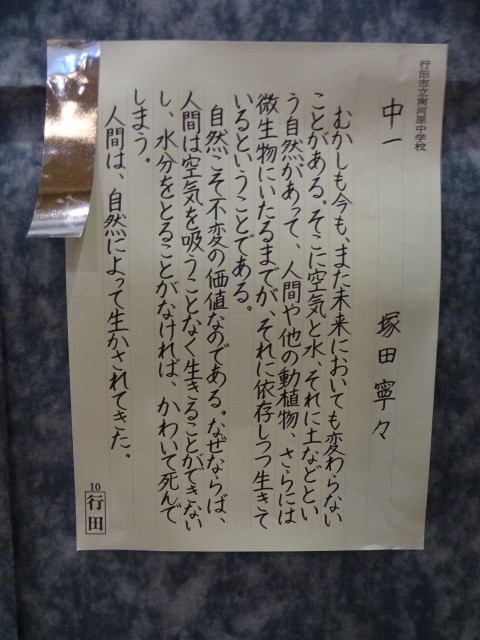 行田市立南河原中学校
中一 塚田寧々
むかしも今も、また未来においても変わらない
ことがある。そこに空気と水、それに土などとい
う自然があって、人間や他の動植物、さらには
微生物にいたるまでが、それに依存しつつ生きて
いるということである。
自然こそ不変の価値なのである。なぜならば、
人間は空気を吸うことなく生きることができない
し、水分をとることがなければ、かわいて死んで
しまう。
人間は、自然によって生かされてきた。
10
行田